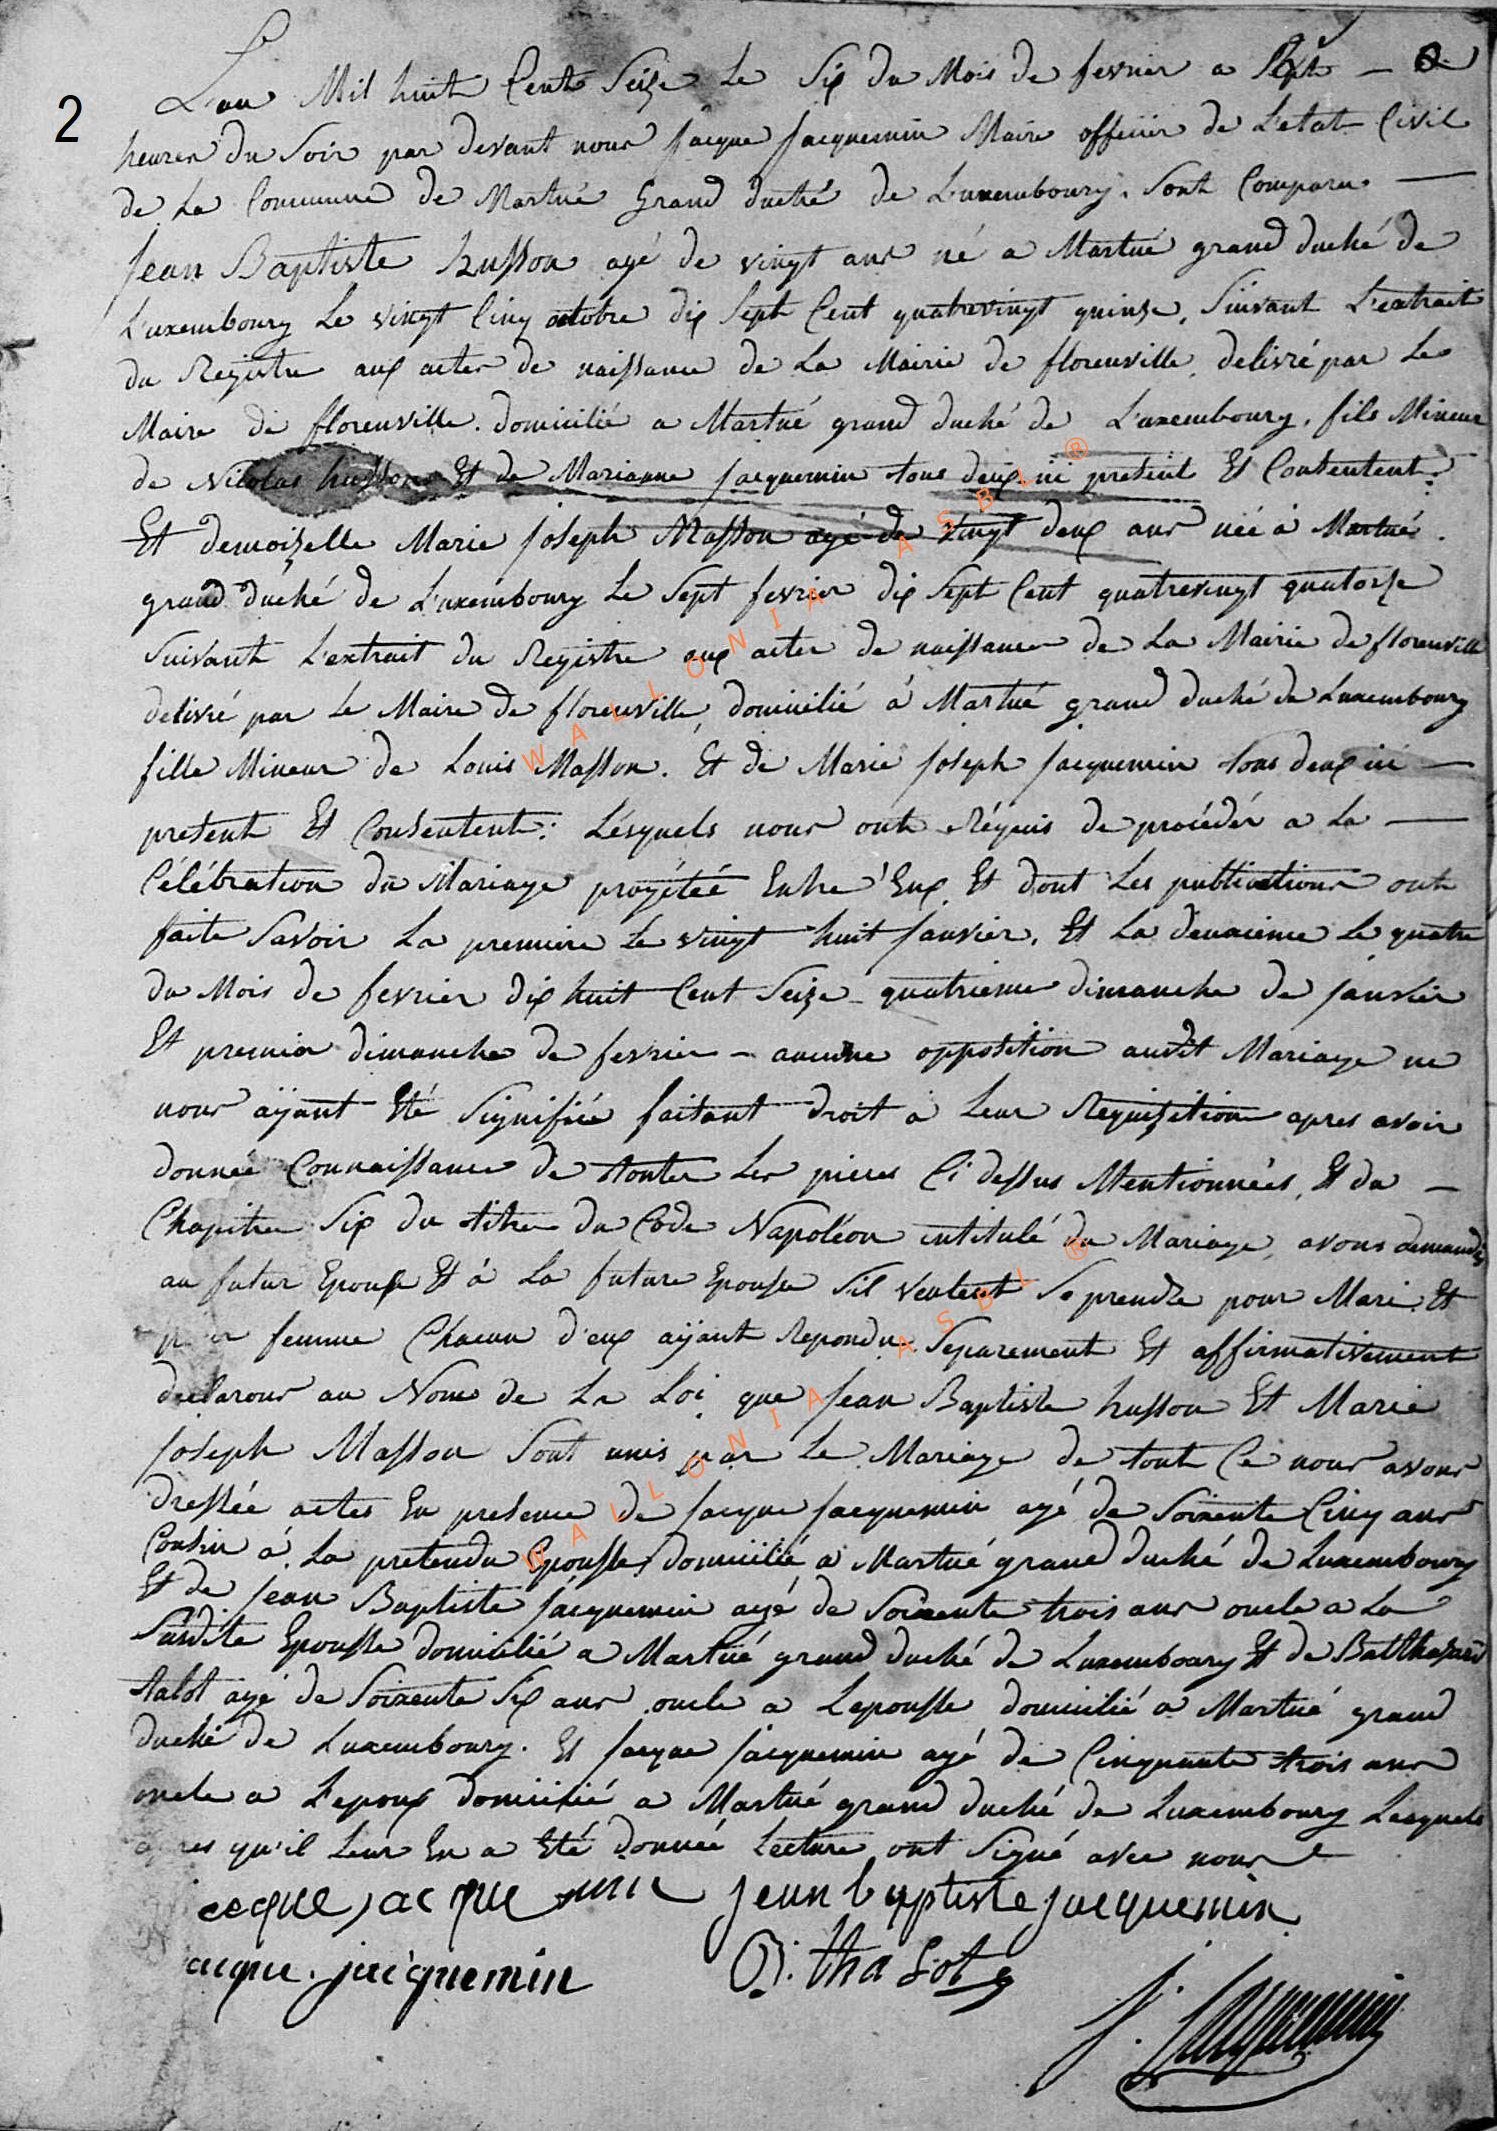 2
L'an Mil huit Cent Seize Le Six du Mois de fevrier a Sept
heures du Soir par devant nous Jacque Jacquemin Maire officier de L'etat Civil
de La Commune de Martué Grand duché de Luxembourg. Sont Comparu
Jean Baptiste husson agé de vingt ans né a Martué grand duché de
Luxembourg Le vingt Cinq octobre dix Sept Cent quatrevingt quinze, Suivant L'extrait
du Registre aux actes de naissance de La Mairie de florenville, delivré par Le
Maire de florenville. domicilié a Martué grand duché de Luxembourg, fils Mineur
de Nicolas husson Et de Marianne Jacquemin tous deux ici present Et Contentent.
Et demoizelle Marie Joseph Masson agé de vingt deux ans née à Martué.
grand duché de Luxembourg Le Sept fevrier dix Sept Cent quatrevingt quatorze
Suivant L'extrait du Registre aux actes de naissance de La Mairie de florenville
delivré par Le Maire de florenville, domicilié á Martué grand duché de Luxembourg
fille Mineur de Louis Masson. Et de Marie Joseph Jacquemin tous deux ici
present Et Consentent: Lésquels nous ont Réquis de procédér a La
Célébration du Mariage progétéé Entre Eux Et dont Les publications ont
faite Savoir La premiere Le vingt huit Janvier, Et La deuxieme Le quatre
du Mois de fevrier dix huit Cent Seize quatrieme dimanche de Janvier
Et premier dimanche de fevrier – aucune opposition audit Mariage ne
nous aÿant Eté Signifiée faisant droit a Leur Requizition apres avoir
donnée Connaissance de toutes Les pieces Ci dessus Mentionnées, Et du
Chapitre Six du titre du Code Napoléon intitulé du Mariage, avons demandés
au futur Epoux Et á La future Epouse Sil veulent Se prendre pour Mari Et
pour femme Chacun d'eux aÿant Repondu Separement Et affirmativement
declarons au Nom de La Loi que Jean Baptiste husson Et Marie
Joseph Masson Sont unis par Le Mariage de tout Ce nous avons
dressée actes En presence de Jacque Jacquemin agé de Soixente Cinq ans
Cousin á La pretendu Epousse, domicilié a Martué grand duché de Luxembourg
Et de Jean Baptiste Jacquemin agé de Soixente trois ans oncle a La
Susdite Epousse domicilié a Martué grand duché de Luxembourg Et de Balthazard
talot agé de Soixente Six ans oncle a Lepousse domicilié a Martué grand
duché de Luxembourg. Et Jacque Jacquemin agé de Cinquante trois ans
oncle a L'epoux domicilié a Martué grand duché de Luxembourg Lesquels
apres qu'il Leur En a Eté donnée Lecture ont Signé avec nous
jean baptiste jacquemin
acque. jacquemin B. tha Lot
J. Jacquemin
WALLONIA ASBL ®
WALLONIA ASBL ®